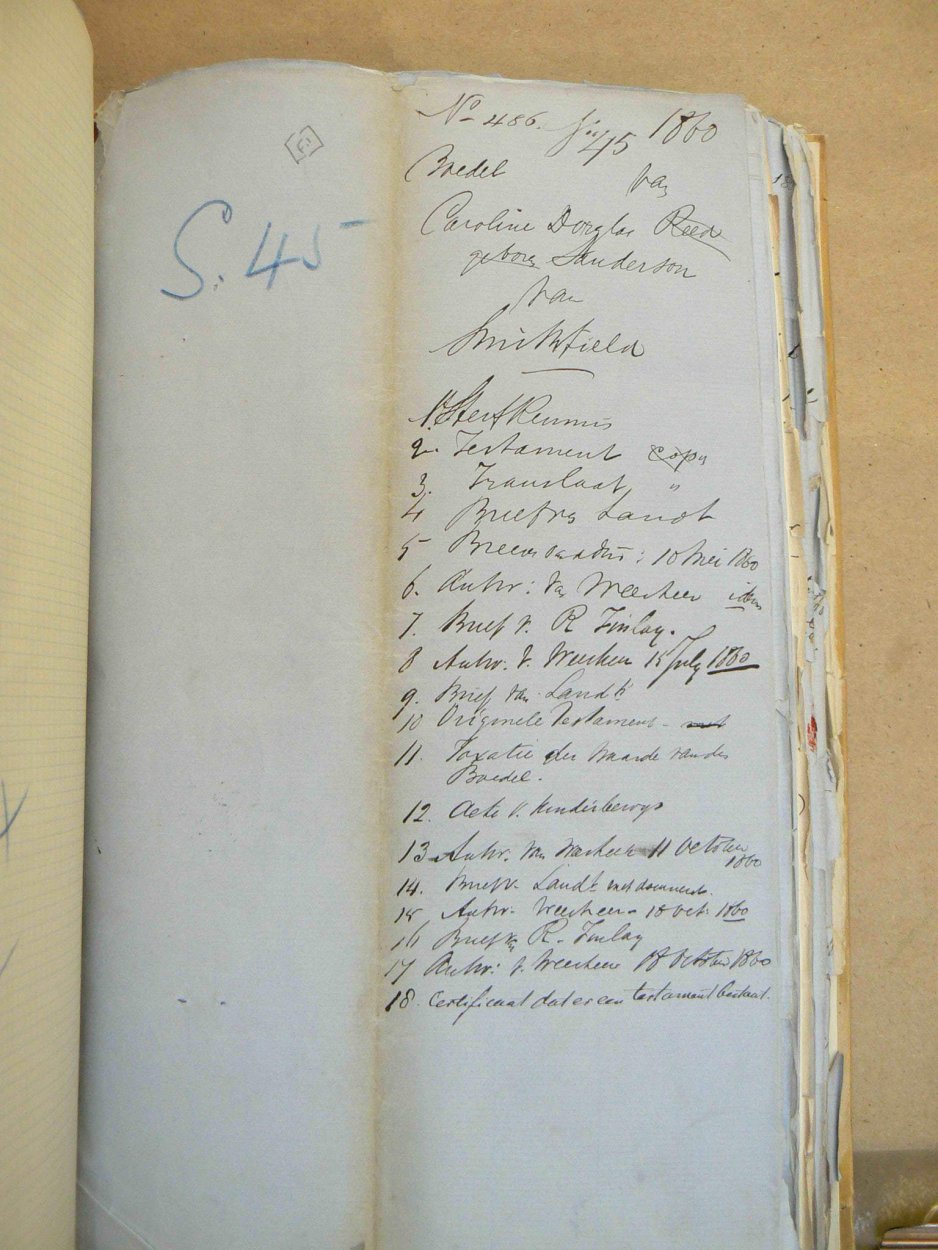 S. 45
No 486. 45 1860
Boedel van
Caroline Douglas Reed
geboren Sanderson
van
Smithfield
1. Sterfkennis
2. Testament copy
3. Translaat "
4 Brief van Landt
5 10 Mei 1860
6. Antw: van Weeskeer idem
7. Brief v. R Finlay.
8 Antw. v. Weeskeer 15 July 1860
9. Brief van Landt
10 Originele Testament
11. Taxatie der Waarde van den
Boedel.
12. Acte v. Kinderbewys
13 Antw. van Weeskeer 11 October
1860
14. Brief v. Landt met
15 Antw. Weeskeer 18 Oct. 1860
16 Brief van R. Finlay
17 Antw: v. Weeskeer 18 October 1860
18. Certificaat dat er een testament bestaat.